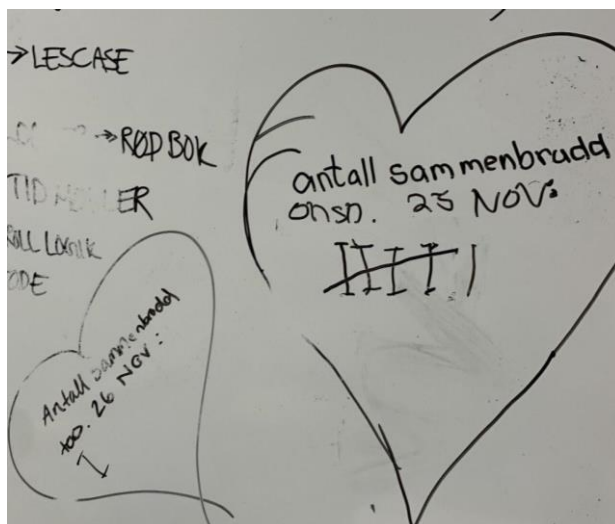 → LESCASE
→ RØD BOK
TID
LER
LOGIKK
ODE
antall sammenbrudd
onsn. 25 NOV:
Antall sammenbrudd
too. 26 NOV:
I